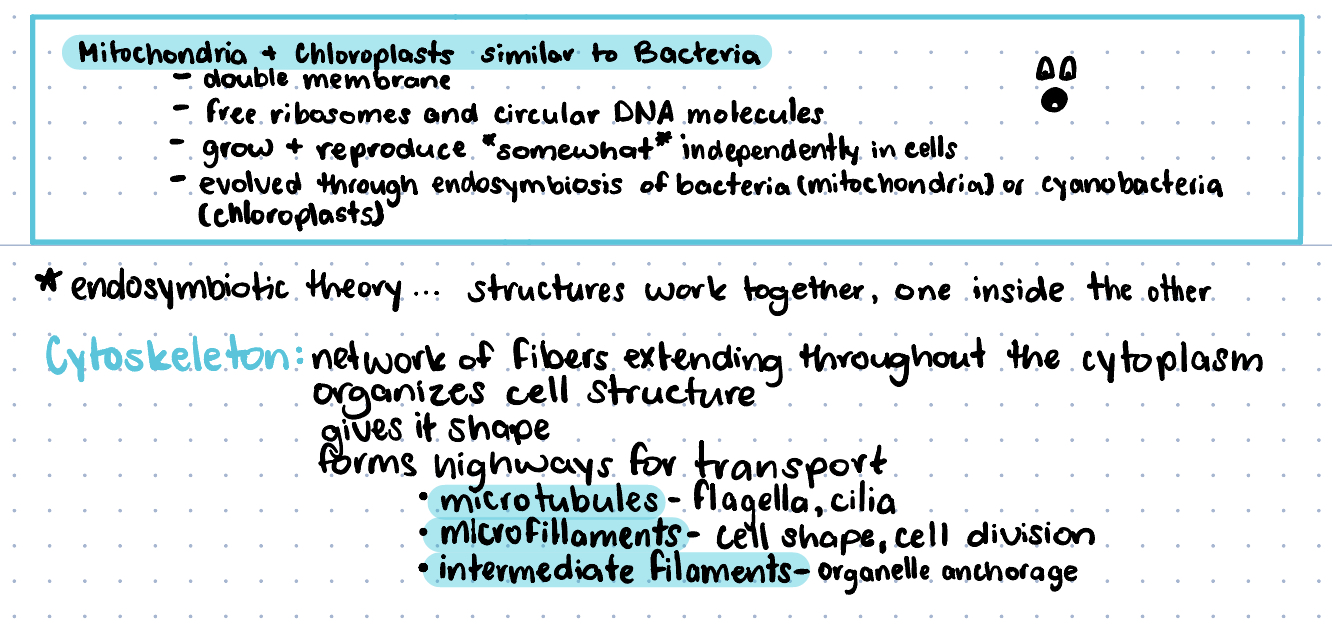 Mitochondria + Chloroplasts similar to Bacteria
- double membrane
- free ribosomes and circular DNA molecules
- grow + reproduce *somewhat* independently in cells
- evolved through endosymbiosis of bacteria (mitochondria) or cyanobacteria
(chloroplasts)
* endosymbiotic theory... structures work together, one inside the other
Cytoskeleton: network of fibers extending throughout the cytoplasm
organizes cell structure
gives it shape
forms highways for transport
• microtubules - flagella, cilia
• microfillaments - cell shape, cell division
• intermediate filaments - organelle anchorage